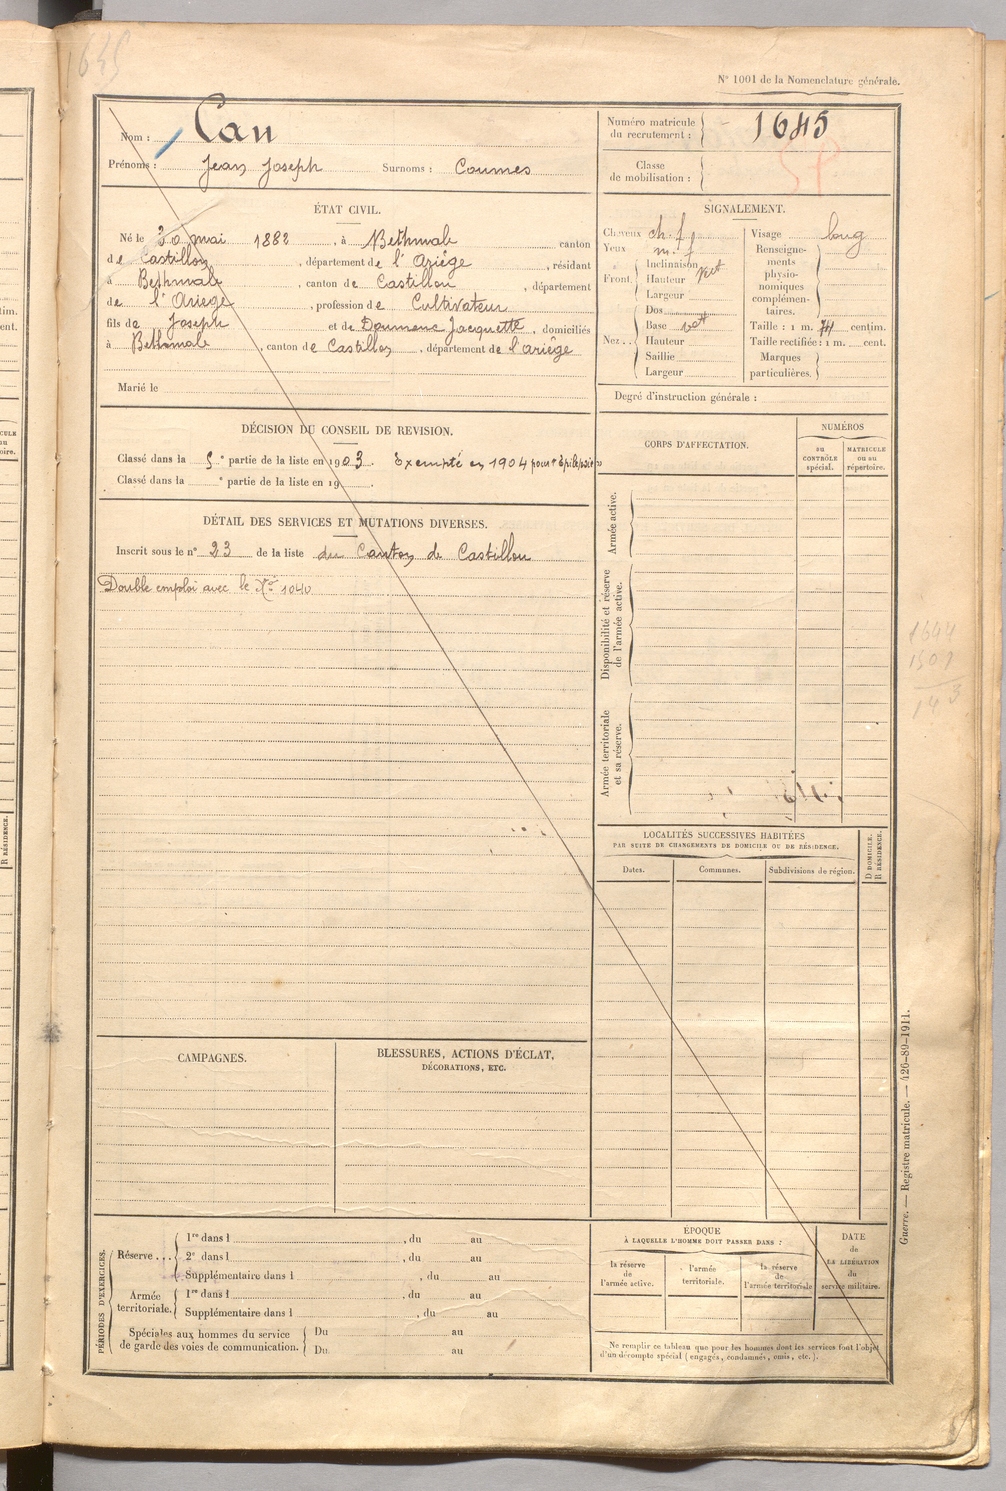 1645
N° 1001 de la Nomenclature générale.
Nom : Cau
Prénoms : Jean Joseph Surnoms : Coumes
Numéro matricule du recrutement : 1645
Classe de mobilisation :
ÉTAT CIVIL.
Né le 30 mai 1882, à Bethmale canton
de Castillon, département de l'Ariége, résidant
à Bethmale, canton de Castillon, département
de l'Ariege, profession de Cultivateur
fils de Joseph et de Doumenc Jacquette, domiciliés
à Bethmale, canton de Castillon, département de l'ariége
Marié le
SIGNALEMENT.
Cheveux ch. f
Yeux m. f
Front. Inclinaison vert
Hauteur
Largeur
Nez... Dos
Base
Hauteur
Saillie
Largeur
Visage long
Renseignements physionomiques complémentaires.
Taille : 1 m. 74 centim.
Taille rectifiée : 1 m. cent.
Marques particulières.
Degré d'instruction générale :
DÉCISION DU CONSEIL DE REVISION.
Classé dans la 5e partie de la liste en 1903. Exempté en 1904 pour Épilepsie
Classé dans la e partie de la liste en 19 .
DÉTAIL DES SERVICES ET MUTATIONS DIVERSES.
Inscrit sous le n° 23 de la liste du Canton de Castillon
Double emploi avec le No 1040
CORPS D'AFFECTATION.
NUMÉROS
au CONTRÔLE spécial.
MATRICULE ou au répertoire.
Armée active.
Disponibilité et réserve de l'armée active.
Armée territoriale et sa réserve.
1644
1501
143
LOCALITÉS SUCCESSIVES HABITÉES
PAR SUITE DE CHANGEMENTS DE DOMICILE OU DE RÉSIDENCE.
Dates. Communes. Subdivisions de région.
D DOMICILE.
R RÉSIDENCE.
CAMPAGNES.
BLESSURES, ACTIONS D'ÉCLAT,
DÉCORATIONS, ETC.
PÉRIODES D'EXERCICES.
Réserve... 1re dans l , du au
2e dans l , du au
Supplémentaire dans l , du au
Armée territoriale. 1re dans l , du au
Supplémentaire dans l , du au
Spéciales aux hommes du service de garde des voies de communication. Du au
Du au
ÉPOQUE
À LAQUELLE L'HOMME DOIT PASSER DANS :
la réserve de l'armée active.
l'armée territoriale.
la réserve de l'armée territoriale
DATE de LA LIBÉRATION du service militaire.
Ne remplir ce tableau que pour les hommes dont les services font l'objet
d'un décompte spécial (engagés, condamnés, omis, etc.).
Guerre. — Registre matricule. — 426-89-1911.